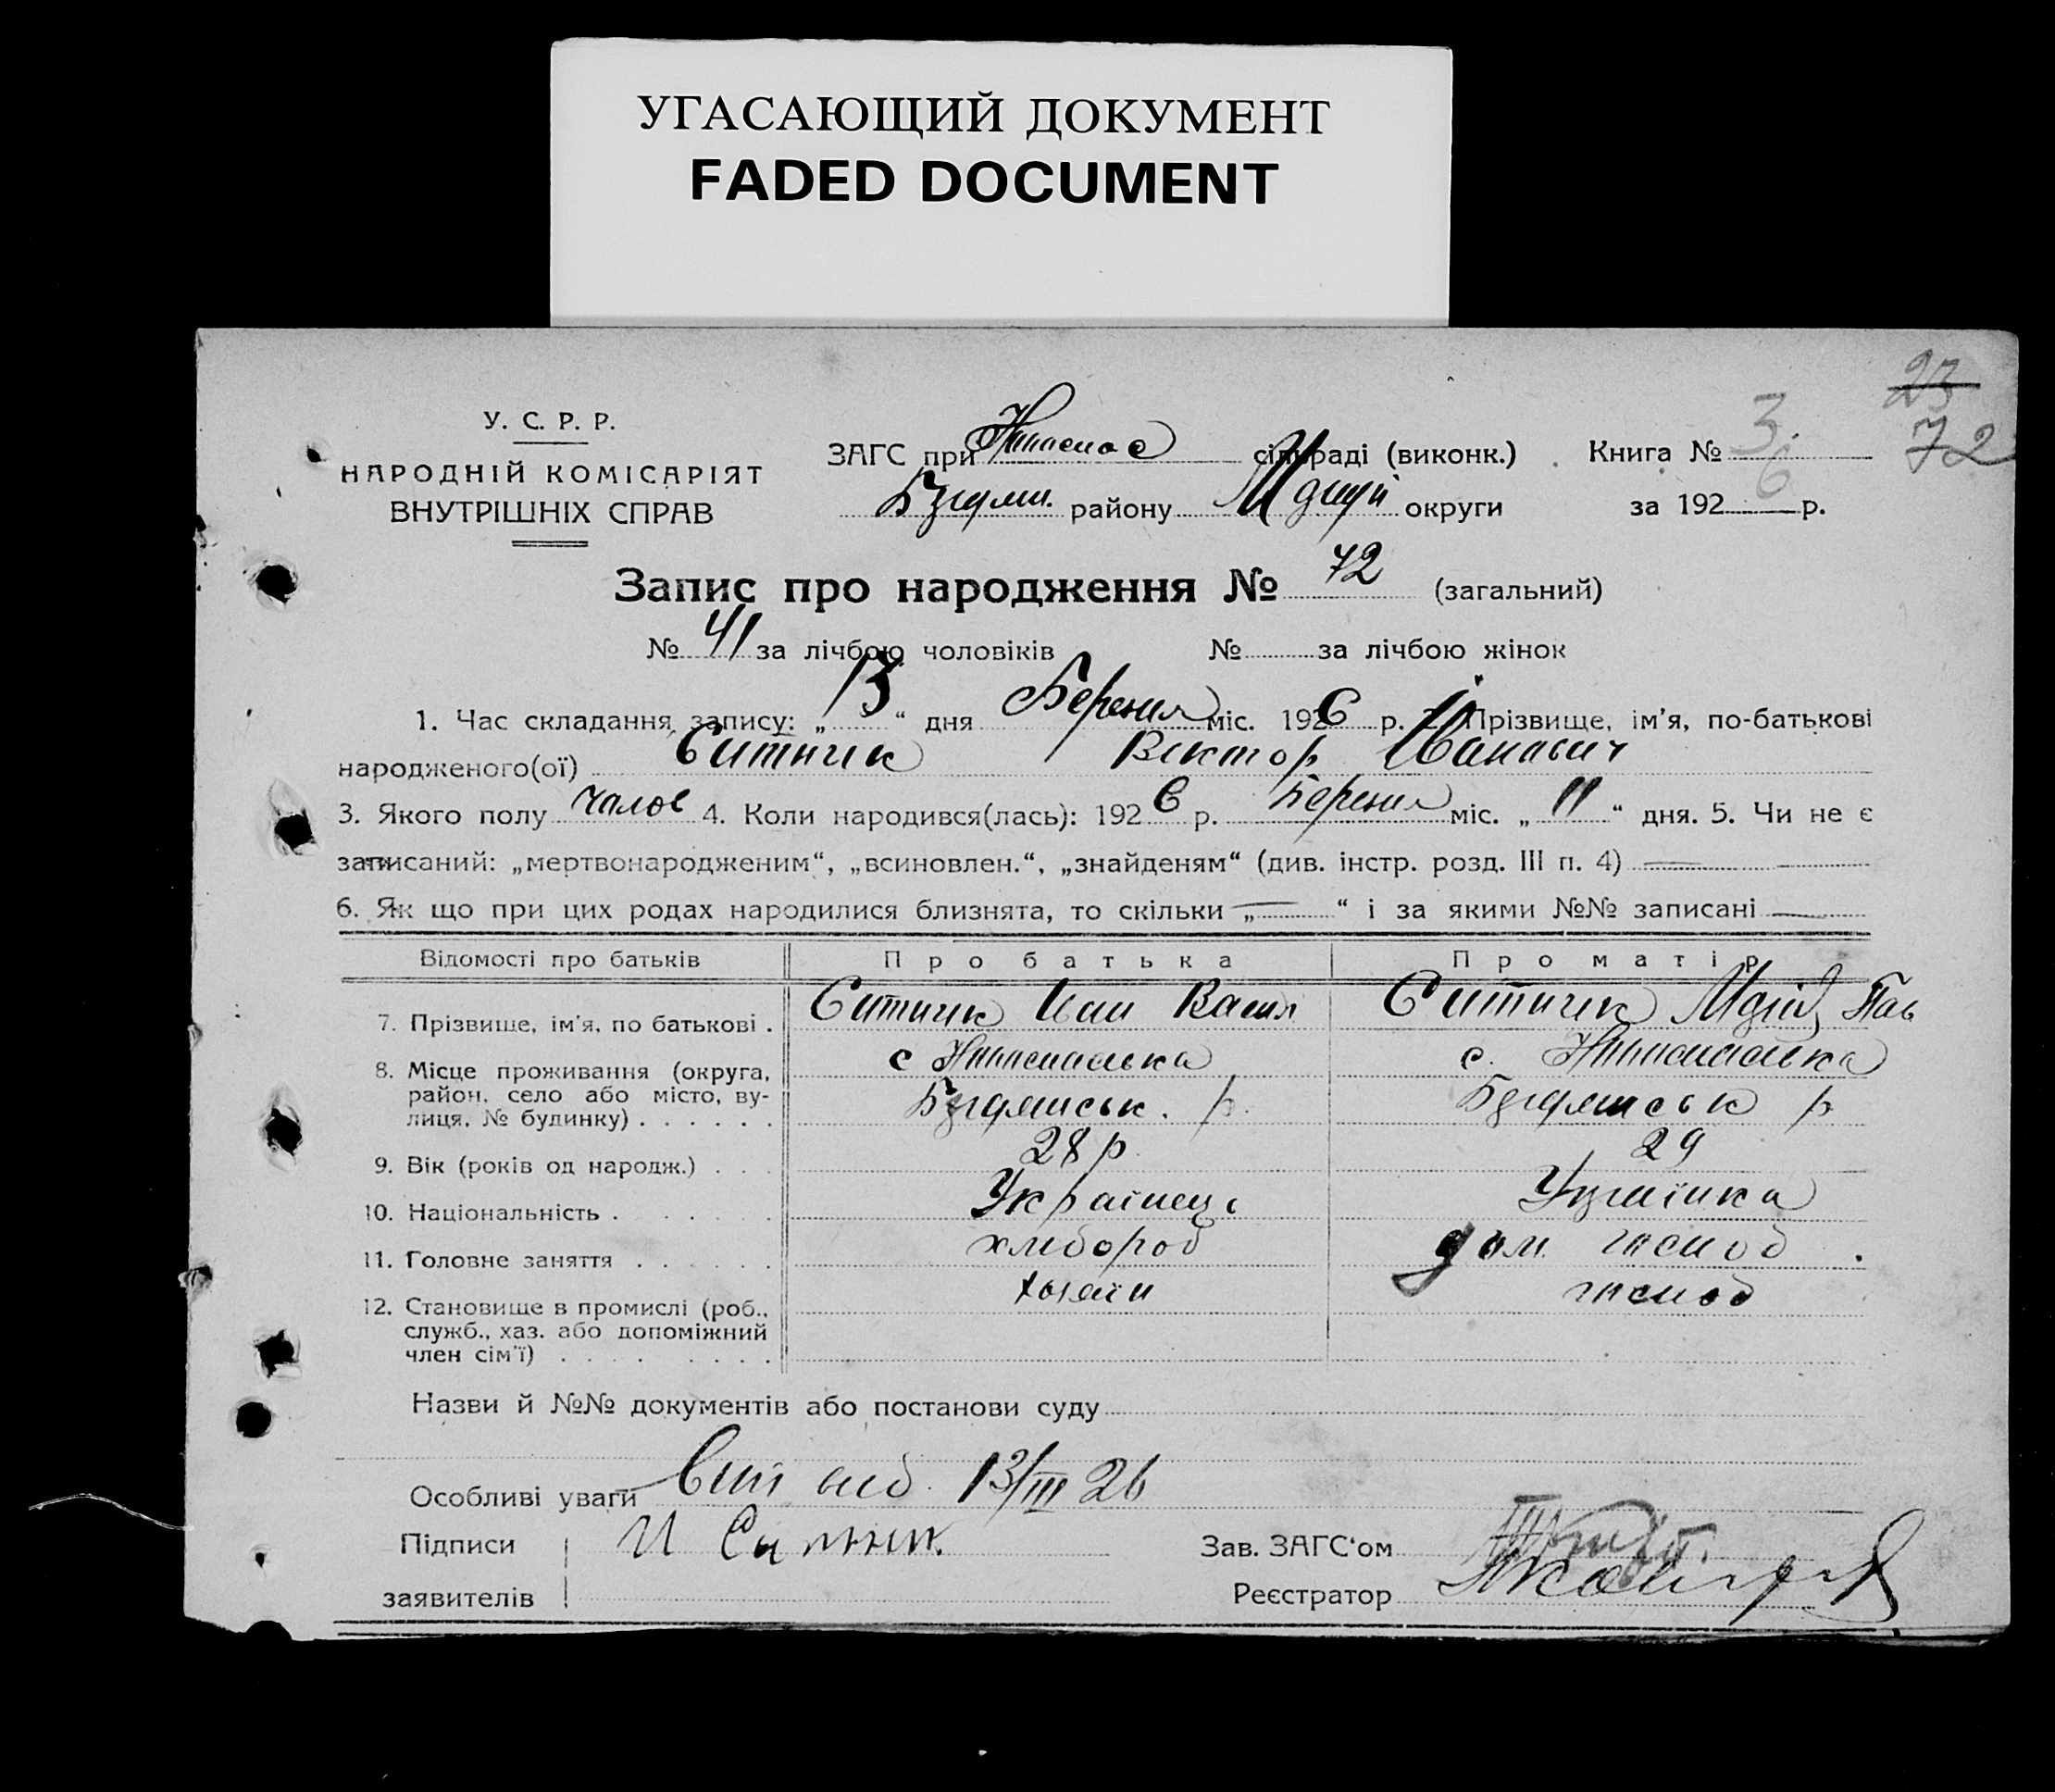 УГАСАЮЩИЙ ДОКУМЕНТ
FADED DOCUMENT
23
72
У. С. Р. Р.
НАРОДНІЙ КОМІСАРІЯТ
ВНУТРІШНІХ СПРАВ
ЗАГС при сільраді (виконк.)
району округи
Книга № 3
за 1926 р.
Запис про народження № 72 (загальний)
№ 41 за лічбою чоловіків № за лічбою жінок
1. Час складання запису: „13“ дня Березня міс. 1926 р. 2. Прізвище, ім'я, по-батькові
народженого(ої) Ситник Виктор Иванович
3. Якого полу чолов 4. Коли народився(лась): 1926 р. Березня міс. „11“ дня. 5. Чи не є
записаний: „мертвонародженим“, „всиновлен.“, „знайденям“ (див. інстр. розд. III п. 4) —
6. Як що при цих родах народилися близнята, то скільки „—“ і за якими №№ записані —
Відомості про батьків Про батька Про матір
7. Прізвище, ім'я, по батькові . Ситник Иван Васил Ситник Пав
8. Місце проживання (округа,
район, село або місто, ву-
лиця, № будинку) . . . . . .
с
р.
с.
р
9. Вік (років од народж.) . . . 28 р. 29
10. Національність . . . . . Українець Українка
11. Головне заняття . . . . . . хлібороб дом. господ.
12. Становище в промислі (роб.,
служб., хаз. або допоміжний
член сім'ї) . . . . . . . .
хозяїн господ
Назви й №№ документів або постанови суду
Особливі уваги 13/III 26
Підписи
заявителів
И Ситник.
Зав. ЗАГС'ом
Реєстратор